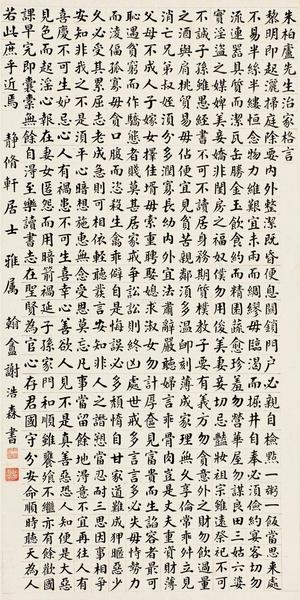 朱柏廬先生治家格言
黎明即起灑掃庭除要內外整潔既昏便息關鎖門戶必親自檢點一粥一飯當思來處
不易半絲半縷恒念物力維艱宜未雨而綢繆毋臨渴而掘井自奉必須儉約宴客切勿
流連器具質而潔瓦缶勝金玉飲食約而精園蔬愈珍羞勿營華屋勿謀良田三姑六婆
實淫盜之媒婢美妾嬌非閨房之福奴僕勿用俊美妻妾切忌豔妝祖宗雖遠祭祀不可
不誠子孫雖愚經書不可不讀居身務期質樸教子要有義方勿貪意外之財勿飲過量
之酒與肩挑貿易毋佔便宜見貧苦親鄰須多溫卹刻薄成家理無久享倫常乖舛立見
消亡兄弟叔姪須分多潤寡長幼內外宜法肅辭嚴聽婦言乖骨肉豈是丈夫重資財薄
父母不成人子嫁女擇佳壻毋索重聘娶媳求淑女勿計厚奩見富貴而生諂容者最可
恥遇貧窮而作驕態者賤莫甚居家戒爭訟訟則終凶處世戒多言言多必失毋恃勢力
而凌逼孤寡毋貪口腹而恣殺生禽乖僻自是悔誤必多頹惰自甘家道難成狎暱惡少
久必受其累屈志老成急則可相依輕聽發言安知非人之譖愬當忍耐三思因事相爭
安知非我之不是須平心暗想施惠無念受恩莫忘凡事當留餘地得意不宜再往人有
喜慶不可生妒忌心人有禍患不可生喜幸心善欲人見不是真善惡恐人知便是大惡
見色而起淫心報在妻女匿怨而用暗箭禍延子孫家門和順雖饔飧不繼亦有餘歡國
課早完即囊橐無餘自得至樂讀書志在聖賢為官心存君國守分安命順時聽天為人
若此庶乎近焉 靜脩軒居士 雅屬 翰盦謝浩森書